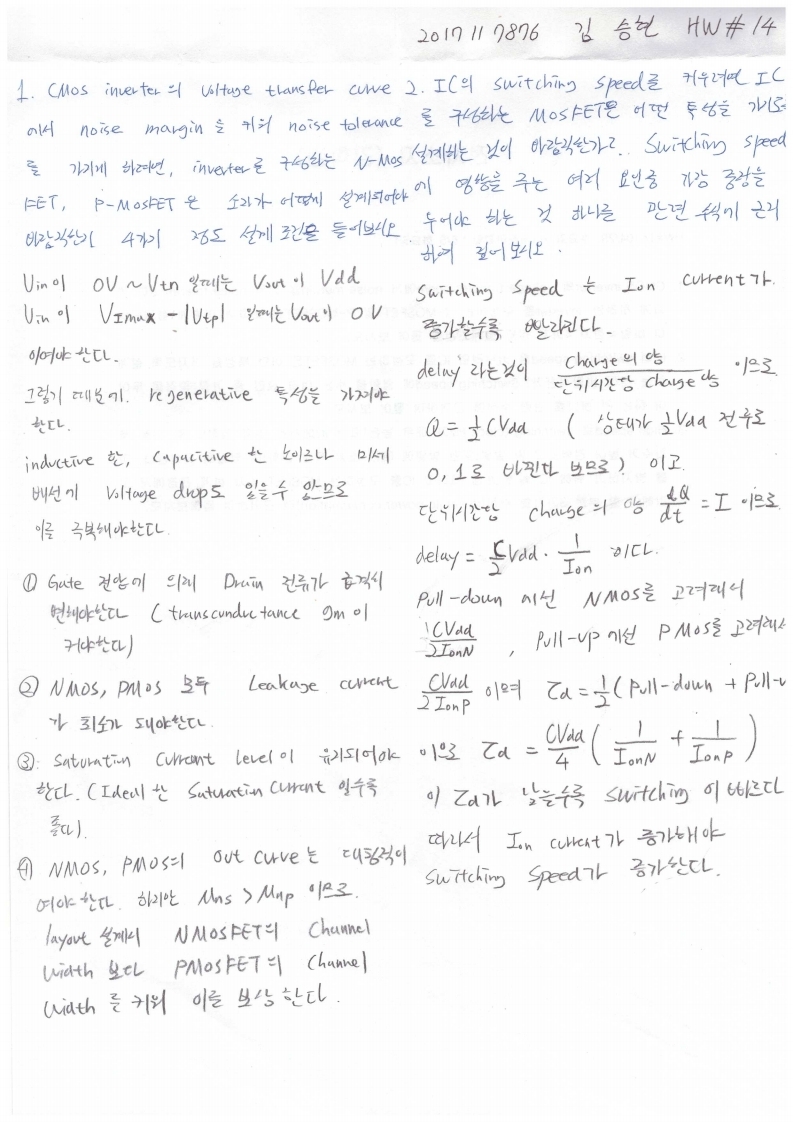 2017117876 김승현 HW#14
1. CMOS inverter의 voltage transfer curve
에서 noise margin을 키워 noise tolerance
를 가지게 하려면, inverter를 구성하는 N-MOS
FET, P-MOSFET은 소자가 어떻게 설계되어야
바람직한가 4가지 정도 설계 조건을 들어보시오
Vin이 0V ~ Vtn 일때는 Vout이 Vdd
Vin이 VImax - |Vtp| 일때는 Vout이 0V
이여야 한다.
그렇기 때문에. regenerative 특성을 가져야
한다.
inductive 한, capacitive 한 노이즈나 미세
배선에 voltage drop도 있을 수 있으므로
이를 극복해야한다.
① Gate 전압에 의해 Drain 전류가 급격히
변해야한다 (transconductance gm이
커야한다)
② NMOS, PMOS 모두 Leakage current
가 최소가 돼야한다.
③: Saturation current level이 유지되어야
한다. (Ideal 한 Saturation current 일수록
좋다).
④ NMOS, PMOS의 out curve는 대칭적이
여야 한다. 하지만 Mns > Mnp 이므로.
layout 설계시 NMOSFET의 Channel
width 보다 PMOSFET의 Channel
width를 키워 이를 보상한다.
2. IC의 switching speed를 키우려면 IC
를 구성하는 MOSFET은 어떤 특성을 가지도록
설계하는 것이 바람직한가? Switching speed
에 영향을 주는 여러 요인중 가장 중점을
두어야 하는 것 하나를 관련 수식에 근거
하여 짚어보시오.
Switching Speed 는 Ion current가
증가할수록 빨라진다.
delay 라는것이 Charge의 양 / 단위시간당 Charge 양 이므로
Q = ½ CVdd ( 상태가 ½Vdd 전후로
0, 1로 바뀐다 보므로 ) 이고.
단위시간당 Charge의 양 dQ/dt = I 이므로
delay = C/2 Vdd · 1/Ion 이다.
Pull-down 에선 NMOS를 고려해서
CVdd/2IonN , Pull-up 에선 PMOS를 고려해서
CVdd/2IonP 이며 τd = ½ (Pull-down + Pull-u
이므로 τd = CVdd/4 ( 1/IonN + 1/IonP )
이 τd가 낮을수록 switching 이 빠르다
따라서 Ion current가 증가해야
Switching Speed가 증가한다.